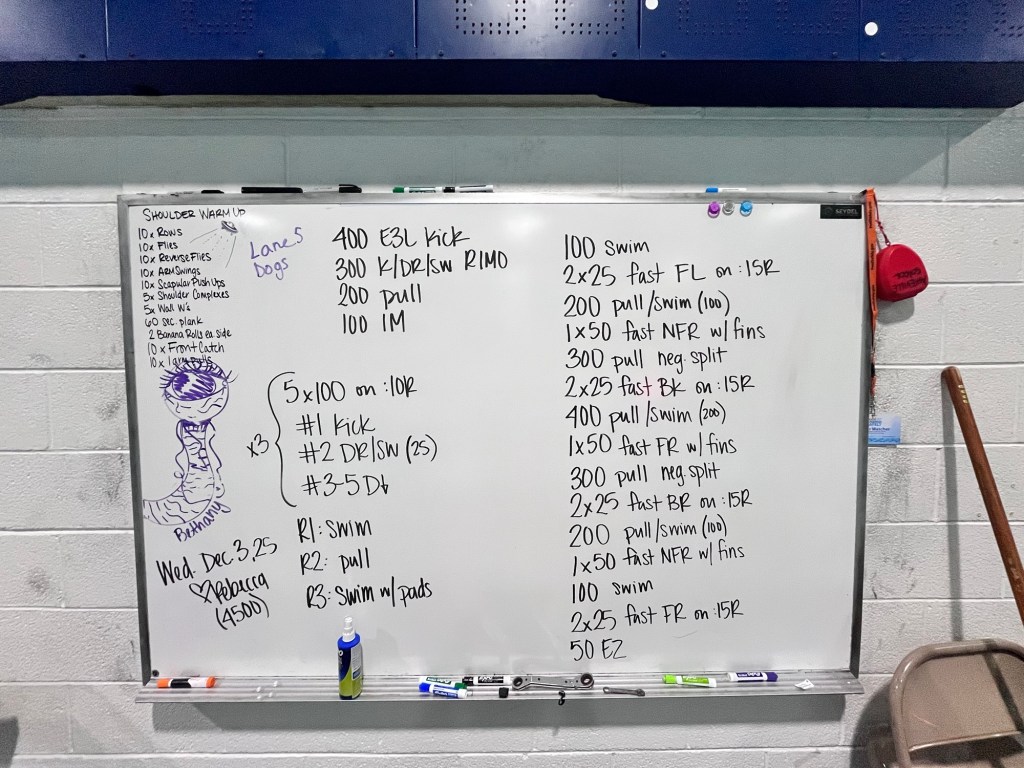 SHOULDER WARM UP
10x Rows
10x Flies
10x Reverse Flies
10x Arm Swings
10x Scapular Push Ups
5x Shoulder Complexes
5x Wall W's
60 sec. plank
2 Banana Rolls ea. side
10 x Front Catch
10 x
Lane 5
Dogs
Bethany
Wed. Dec. 3, 25
♡Rebecca
(4500)
400 E3L Kick
300 K/DR/SW RIMO
200 pull
100 IM
x3
5x100 on :10R
#1 Kick
#2 DR/SW (25)
#3-5 D↓
R1: Swim
R2: pull
R3: Swim w/ pads
100 swim
2x25 fast FL on :15R
200 pull/swim (100)
1x50 fast NFR w/ fins
300 pull neg. split
2x25 fast BK on :15R
400 pull/swim (200)
1x50 fast FR w/ fins
300 pull neg. split
2x25 fast BR on :15R
200 pull/swim (100)
1x50 fast NFR w/ fins
100 swim
2x25 fast FR on :15R
50 EZ